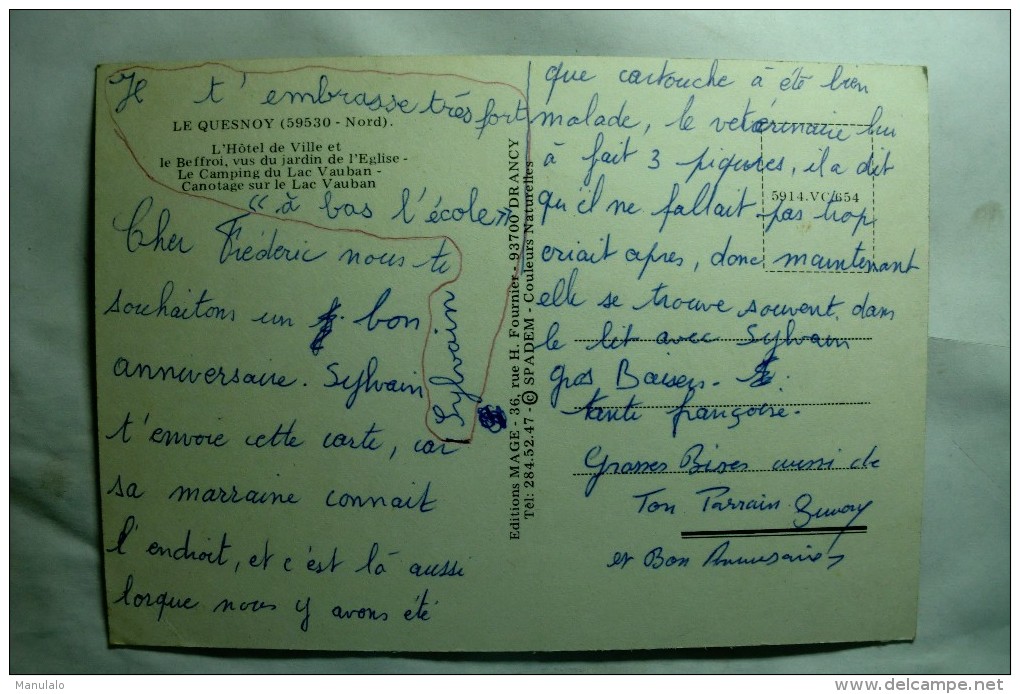 Je t'embrasse très fort
LE QUESNOY (59530 - Nord).
L'Hôtel de Ville et
le Beffroi, vus du jardin de l'Eglise -
Le Camping du Lac Vauban -
Canotage sur le Lac Vauban
« à bas l'école »
Sylvain
Cher Frédéric nous te
souhaitons un bon
anniversaire. Sylvain
t'envoie cette carte, car
sa marraine connait
l'endroit, et c'est là aussi
lorque nous y avons été
Editions MAGE - 36, rue H. Fournier - 93700 DRANCY
Tél: 284.52.47 - © SPADEM - Couleurs Naturelles
que cartouche à été bien
malade, le vetérinaire lui
à fait 3 piqures, il a dit
5914.VC/654
qu'il ne fallait pas trop
criait apres, donc maintenant
elle se trouve souvent dans
le lit avec Sylvain
gros Baisers.
tante françoise.
Grosses Bises aussi de
Ton Parrain
et Bon Anniversaire
Manulalo